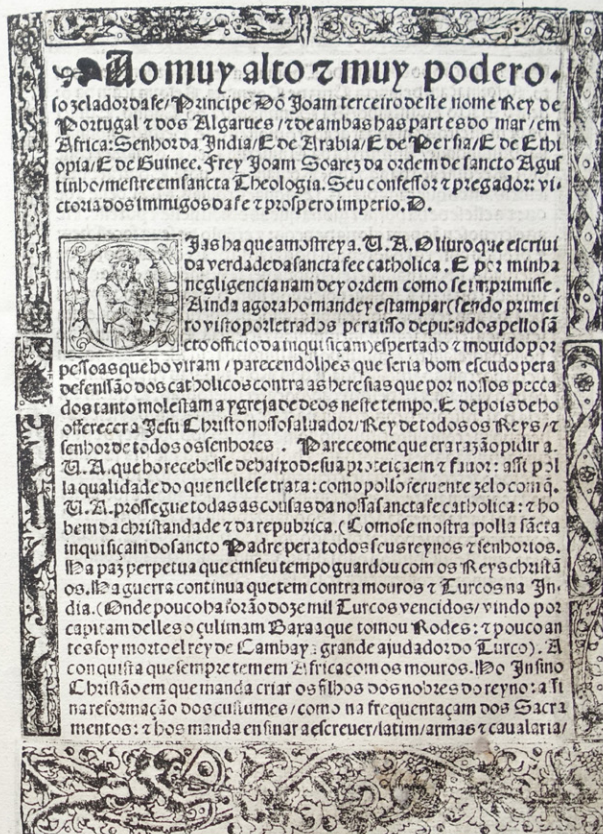 Ao muy alto ⁊ muy podero-
so zelador da fe/ Principe Dõ Joam terceiro deste nome Rey de
Portugal ⁊ dos Algarues/ ⁊ de ambas has partes do mar/ em
Africa: Senhor da India/ E de Arabia/ E de Persia/ E de Ethi
opia/ E de Guinee. Frey Joam Soarez da ordem de sancto Agus
tinho/ mestre em sancta Theologia. Seu confessor ⁊ pregador: vi-
ctoria dos immigos da fe ⁊ prospero imperio. D.
Dias ha que amostrey a. U. A. O liuro que escriui
da verdade da sancta fee catholica. E por minha
negligencia nam dey ordem como se imprimisse.
Ainda agora ho mandey estampar (sendo primei
ro visto por letrados pera isso deputados pello sã
cto officio da inquisiçam) espertado ⁊ mouido por
pessoas que ho viram/ parecendolhes que seria bom escudo pera
defensão dos catholicos contra as heresias que por nossos pecca
dos tanto molestam a ygreja de deos neste tempo. E depois de ho
offerecer a Jesu Christo nosso saluador/ Rey de todos os Reys/ ⁊
senhor de todos os senhores. Pareceome que era razão pidir a.
U. A. que ho recebesse debaixo de sua proteiçaem ⁊ fauor: assi pol
la qualidade do que nelle se trata: como pollo feruente zelo com q̃.
U. A. prossegue todas as cousas da nossa sancta fe catholica: ⁊ ho
bem da christandade ⁊ da republica. (Como se mostra polla sãcta
inquisiçam do sancto Padre pera todos seus reynos ⁊ senhorios.
Na paz perpetua que em seu tempo guardou com os Reys christã
os. Na guerra continua que tem contra mouros ⁊ Turcos na In-
dia. (Onde pouco ha forão doze mil Turcos vencidos/ vindo por
capitam delles o çulimam Baxaa que tomou Rodes: ⁊ pouco an
tes foy morto el rey de Cambaya grande ajudador do Turco). A
conquista que sempre tem em Africa com os mouros. No Insino
Christão em que manda criar os filhos dos nobres do reyno: assi
na reformação dos custumes/ como na frequentaçam dos Sacra
mentos: ⁊ hos manda ensinar a escreuer/ latim/ armas ⁊ caualaria/